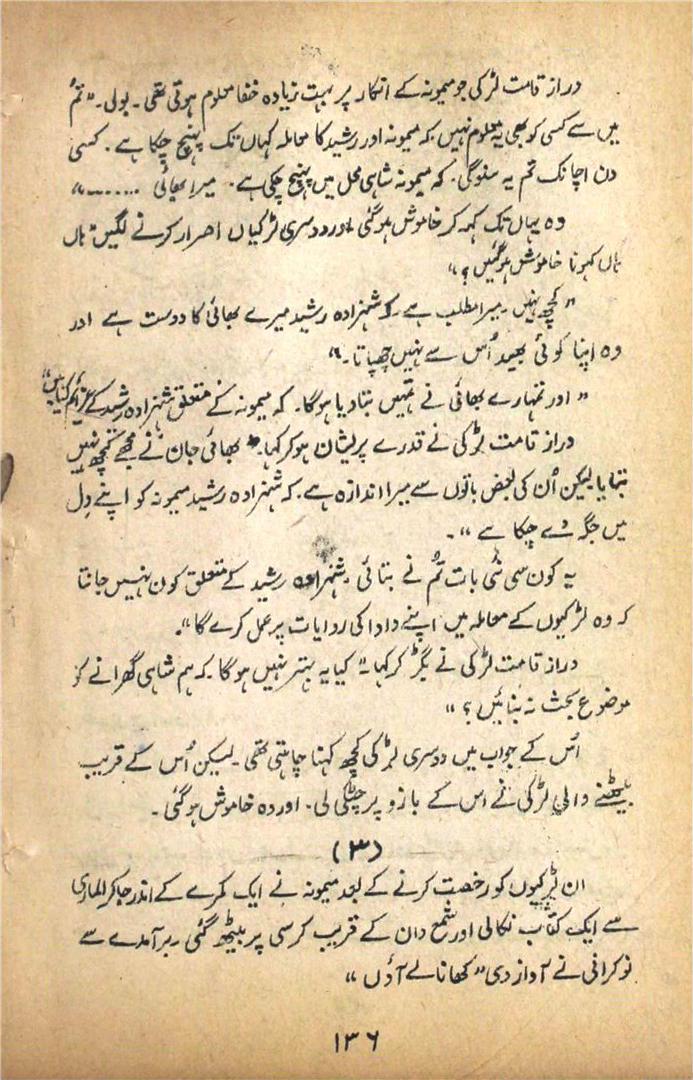 دراز قامت لڑکی جو میمونہ کے انکار پر بہت زیادہ خفا معلوم ہوتی تھی۔ بولی۔ "تمُ
میں سے کسی کو بھی یہ معلوم نہیں۔ کہ میمونہ اور رشید کا معاملہ کہاں تک پہنچ چکا ہے۔ کسی
دن اچانک تم یہ سنوگی۔ کہ میمونہ شاہی محل میں پہنچ چکی ہے۔ میرا بھائی ........"
وہ یہاں تک کہہ کر خاموش ہوگئی اور دوسری لڑکیاں اصرار کرنے لگیں" ہاں
ہاں کہو نا خاموش ہوگئیں؟"
"کچھ نہیں۔ میرا مطلب ہے۔ کہ شہزادہ رشید میرے بھائی کا دوست ہے اور
وہ اپنا کوئی بھید اُس سے نہیں چھپاتا۔"
"اور تمہارے بھائی نے تمہیں بتا دیا ہوگا۔ کہ میمونہ کے متعلق شہزادہ رشید کے عزائم کیا ہیں"
دراز قامت لڑکی نے قدرے پریشان ہوکر کہا۔ "بھائی جان نے مجھے کچھ نہیں
بتایا لیکن اُن کی بعض باتوں سے میرا اندازہ ہے۔ کہ شہزادہ رشید میمونہ کو اپنے دِل
میں جگہ دے چکا ہے"۔
یہ کون سی نئی بات تمُ نے بتائی شہزادہ رشید کے متعلق کون نہیں جانتا
کہ وہ لڑکیوں کے معاملہ میں اپنے دادا کی روایات پر عمل کرے گا"۔
دراز قامت لڑکی نے بگڑ کر کہا۔" کیا یہ بہتر نہیں ہوگا۔ کہ ہم شاہی گھرانے کو
موضوع بحث نہ بنائیں؟"
اُس کے جواب میں دوسری لڑکی کچھ کہنا چاہتی تھی۔ لیکن اُس کے قریب
بیٹھنے والی لڑکی نے اس کے بازو پر چٹکی لی۔ اور وہ خاموش ہوگئی۔
(۳)
ان لڑکیوں کو رخصت کرنے کے بعد میمونہ نے ایک کمرے کے اندر جاکر الماری
سے ایک کتاب نکالی اور شمع دان کے قریب کرسی پر بیٹھ گئی۔ برآمدے سے
نوکرانی نے آواز دی" کھانا لے آؤں"
۱۳۶